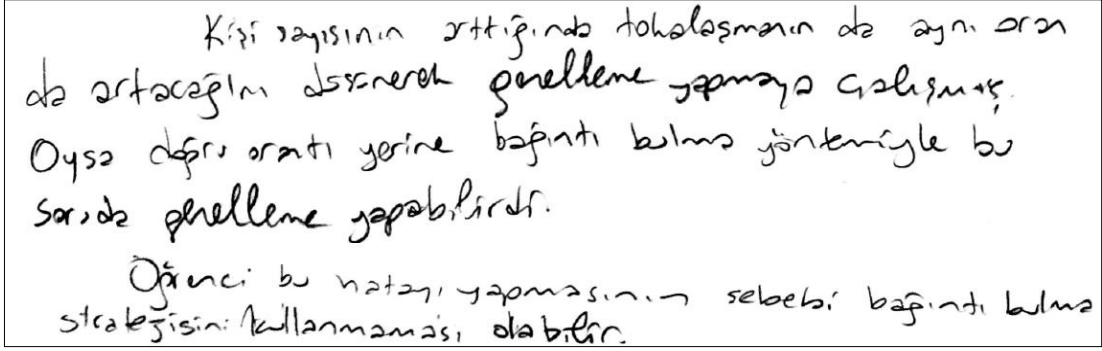 Kişi sayısının arttığında tokalaşmanın da aynı oran
da artacağını düşünerek genelleme yapmaya çalışmış.
Oysa doğru orantı yerine bağıntı bulma yöntemiyle bu
soruda genelleme yapabilirdi.
Öğrenci bu hatayı yapmasının sebebi bağıntı bulma
stratejisini kullanmaması olabilir.